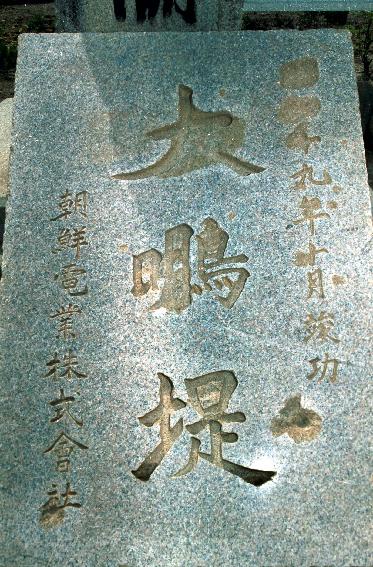 十九年十月竣功
大鵬堤
朝鮮電業株式會社